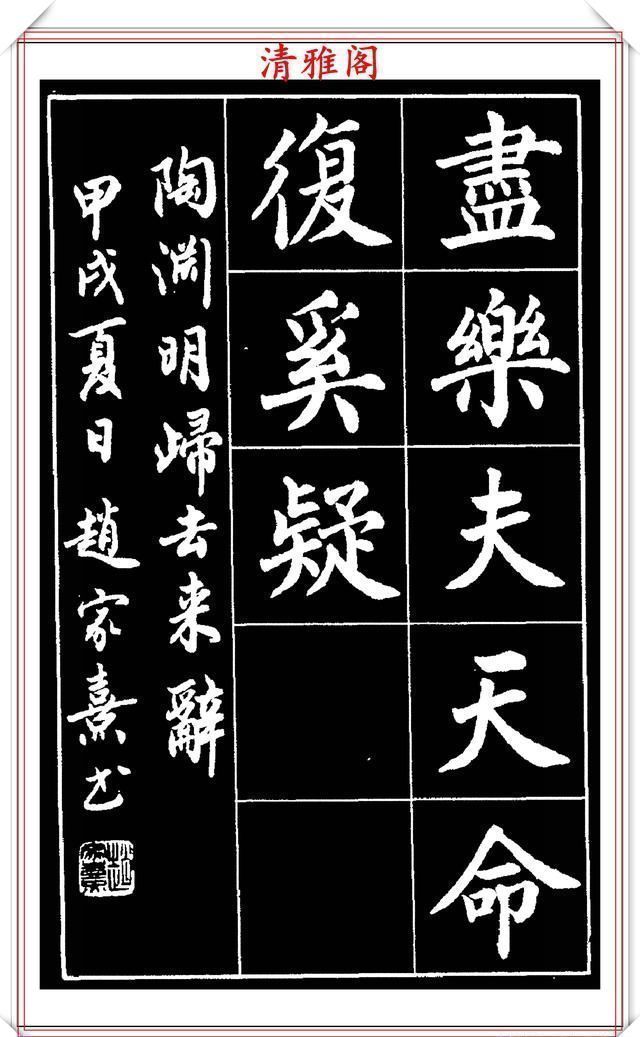 清雅阁
盡樂夫天命
復奚疑
陶淵明歸去来辭
甲戌夏日趙家熹书